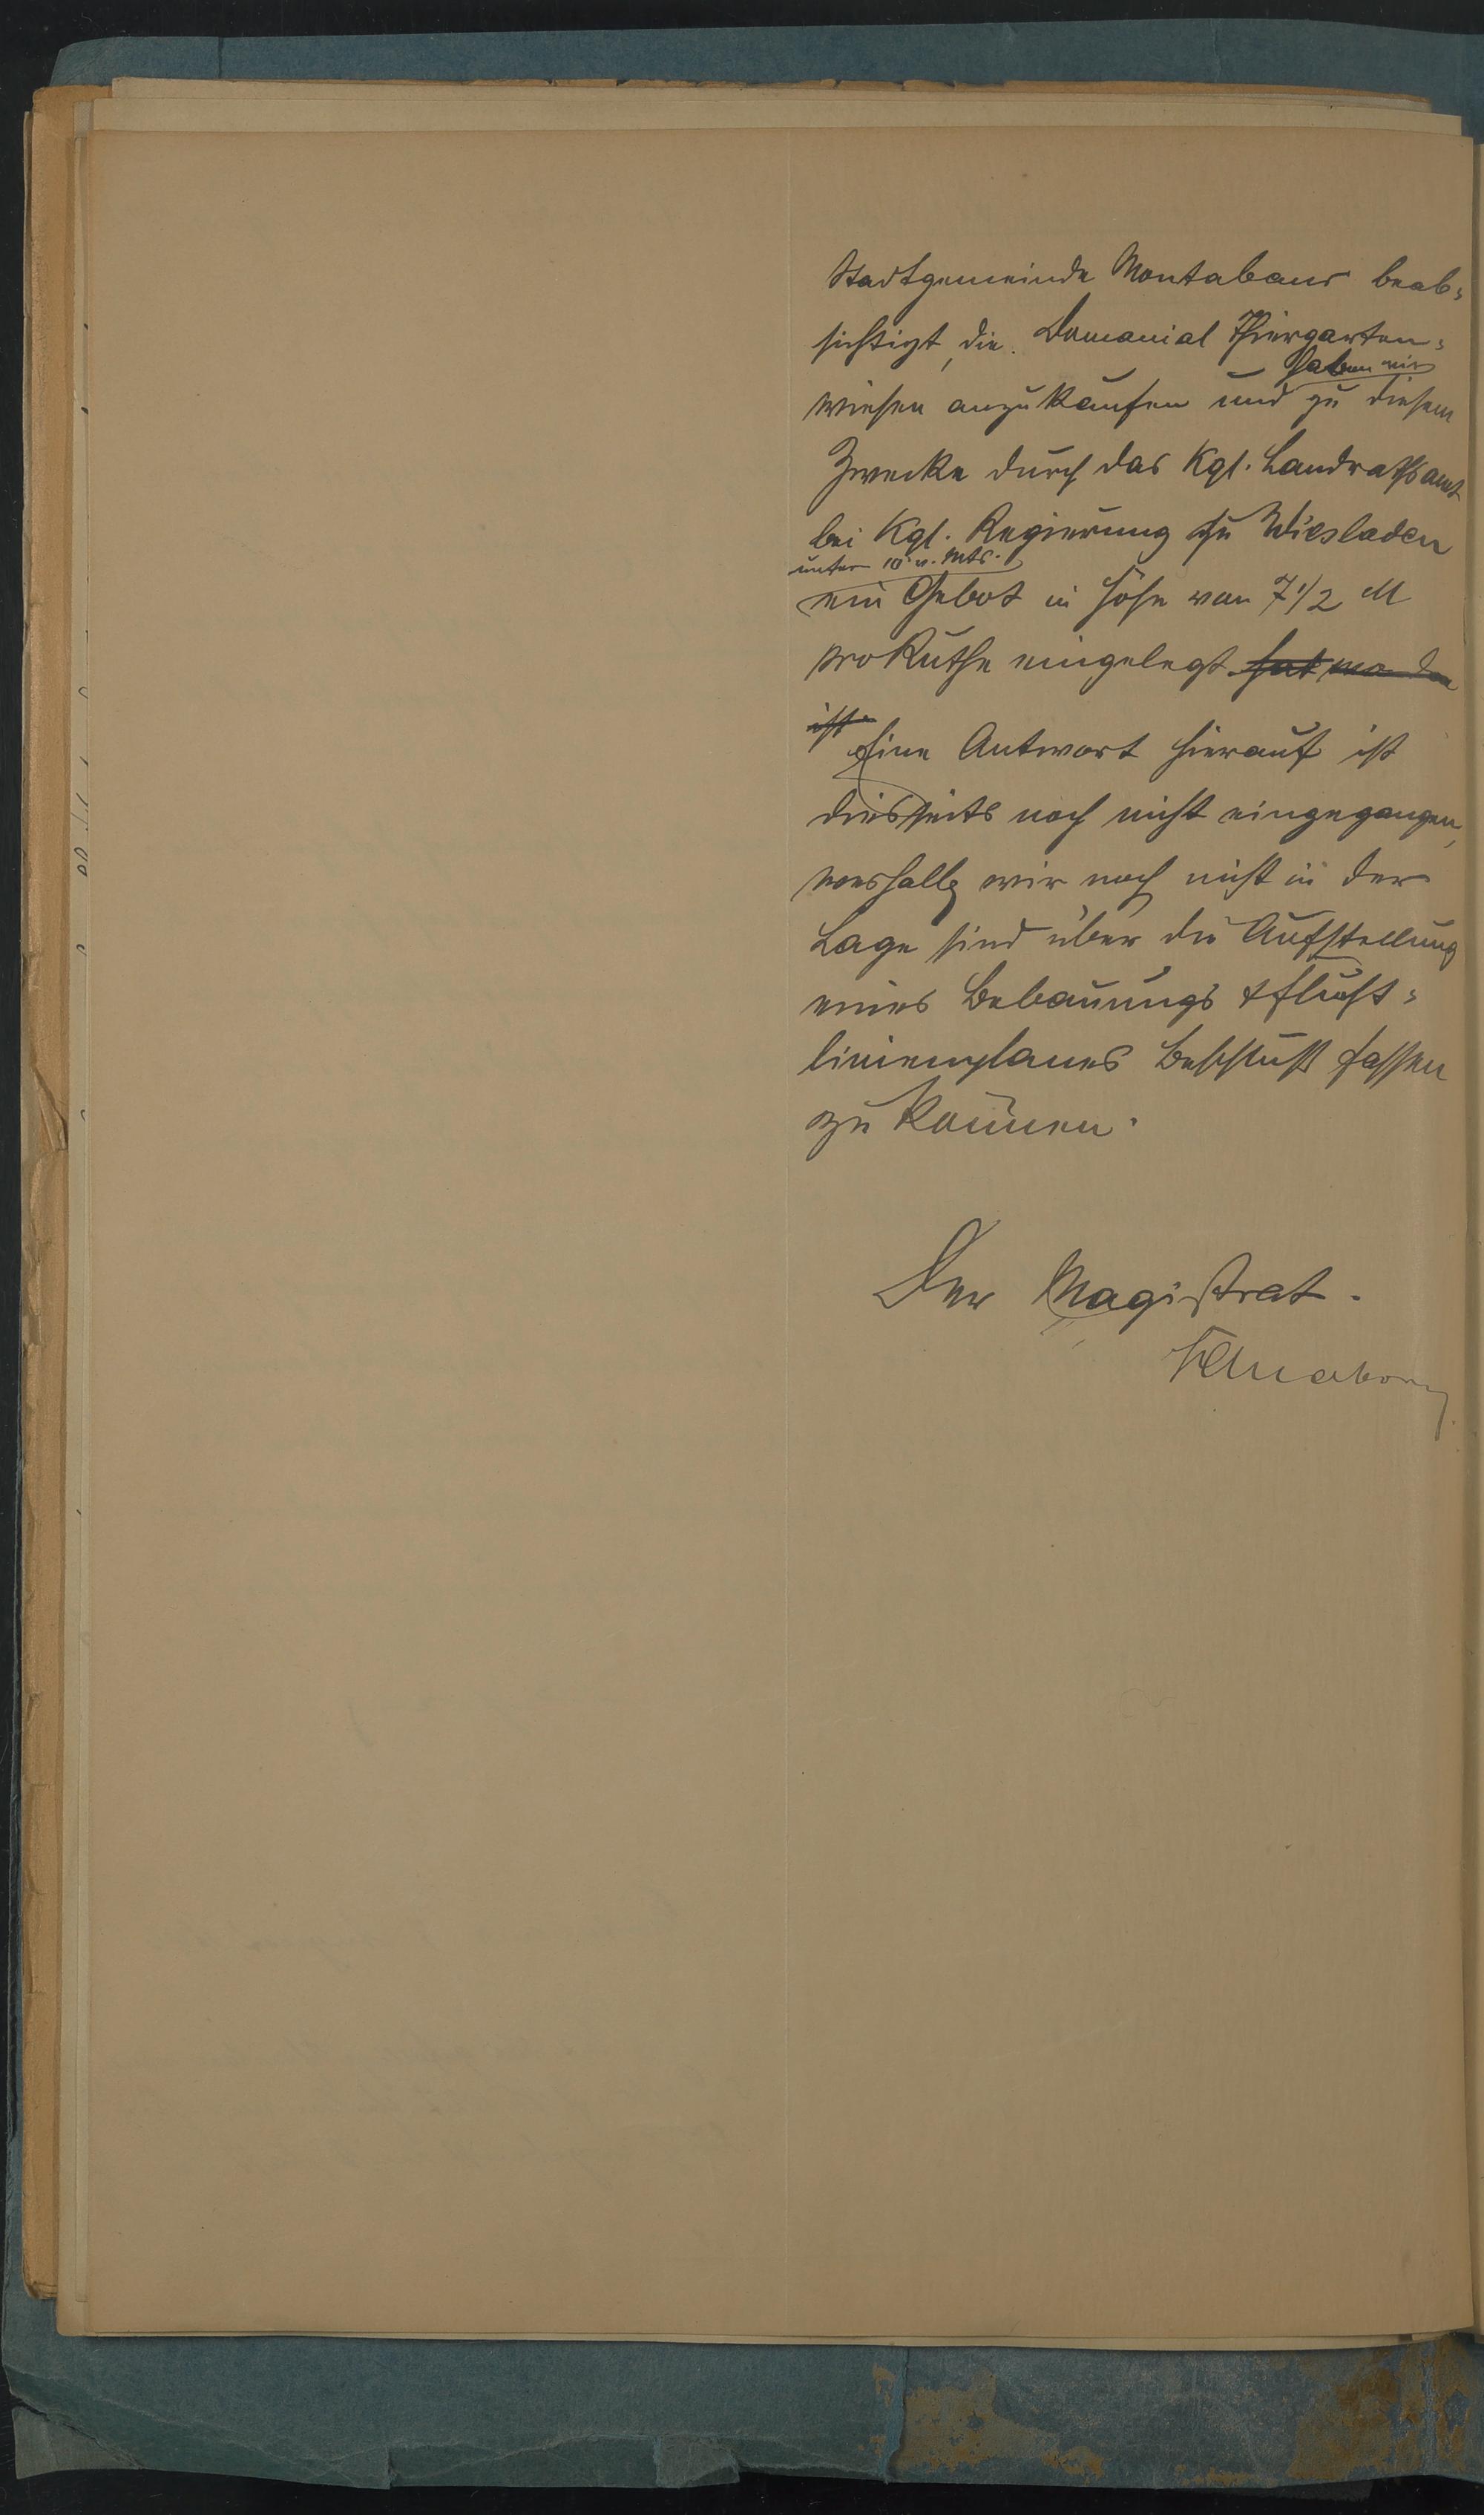 Stadtgemeinde Montabaur beab-
sichtigt, die Domanial Thiergarten-
haben wir
wiesen anzukaufen und zu diesem
Zwecke durch das Kgl. Landrathsamt
bei Kgl. Regierung zu Wiesbaden
unter 10 v. Mts.
ein Gebot in Höhe von 7 1/2 M
pro Ruthe eingelegt hat worden
ist. Eine Antwort hierauf ist
diesseits noch nicht eingegangen,
weshalb wir noch nicht in der
Lage sind über die Aufstellung
eines Bebauungs & Flucht-
linienplanes Beschluß fassen
zu können.
Der Magistrat.